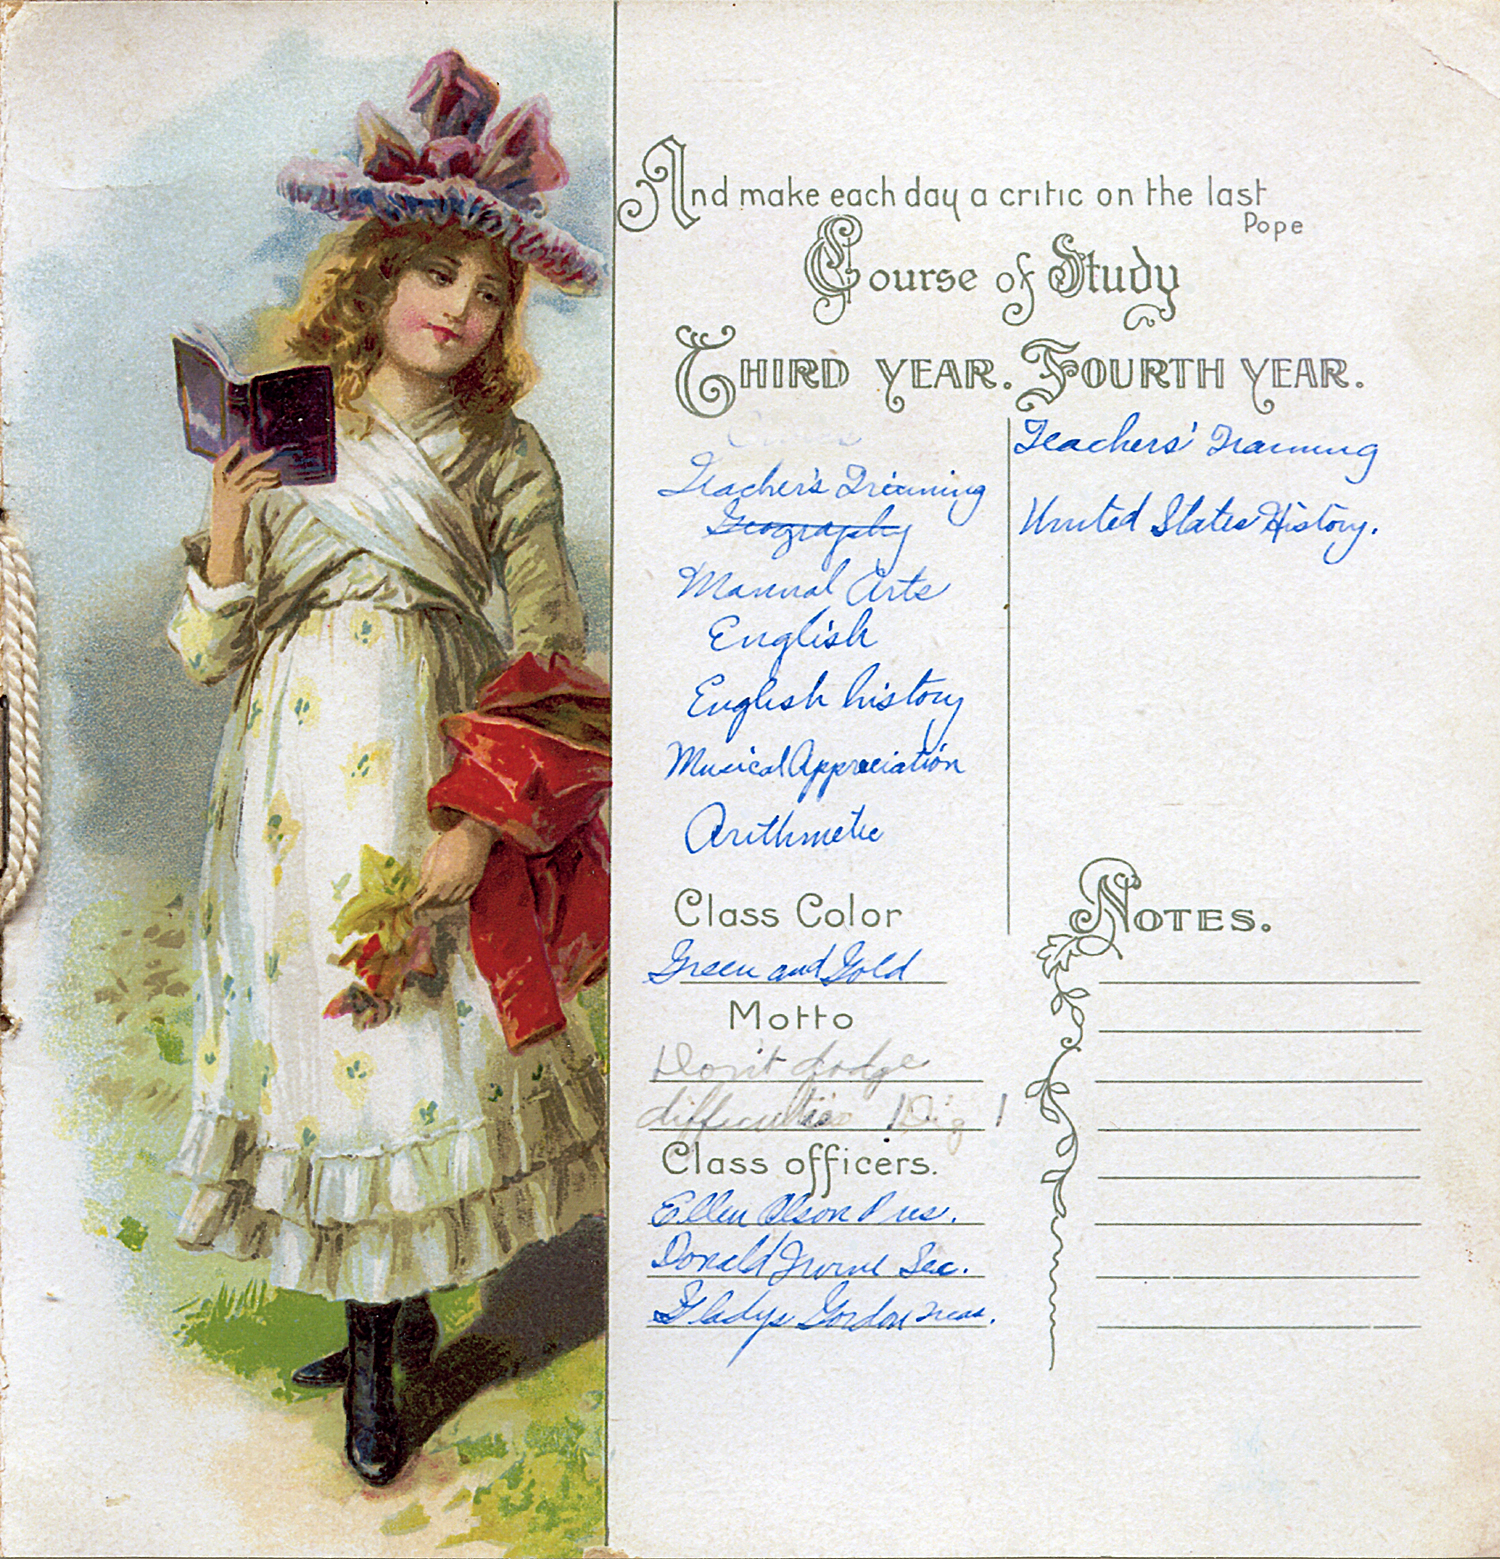 And make each day a critic on the last
Pope
Course of Study
Third Year.
Teacher's Training
Geography
Manual Arts
English
English history
Musical Appreciation
Arithmetic
Fourth Year.
Teachers' Training
United States History.
Class Color
Green and Gold
Motto
Don't dodge
difficulties! Dig!
Class officers.
Ellen Olson Pres.
Donald Irvine Sec.
Gladys Gordon Treas.
Notes.